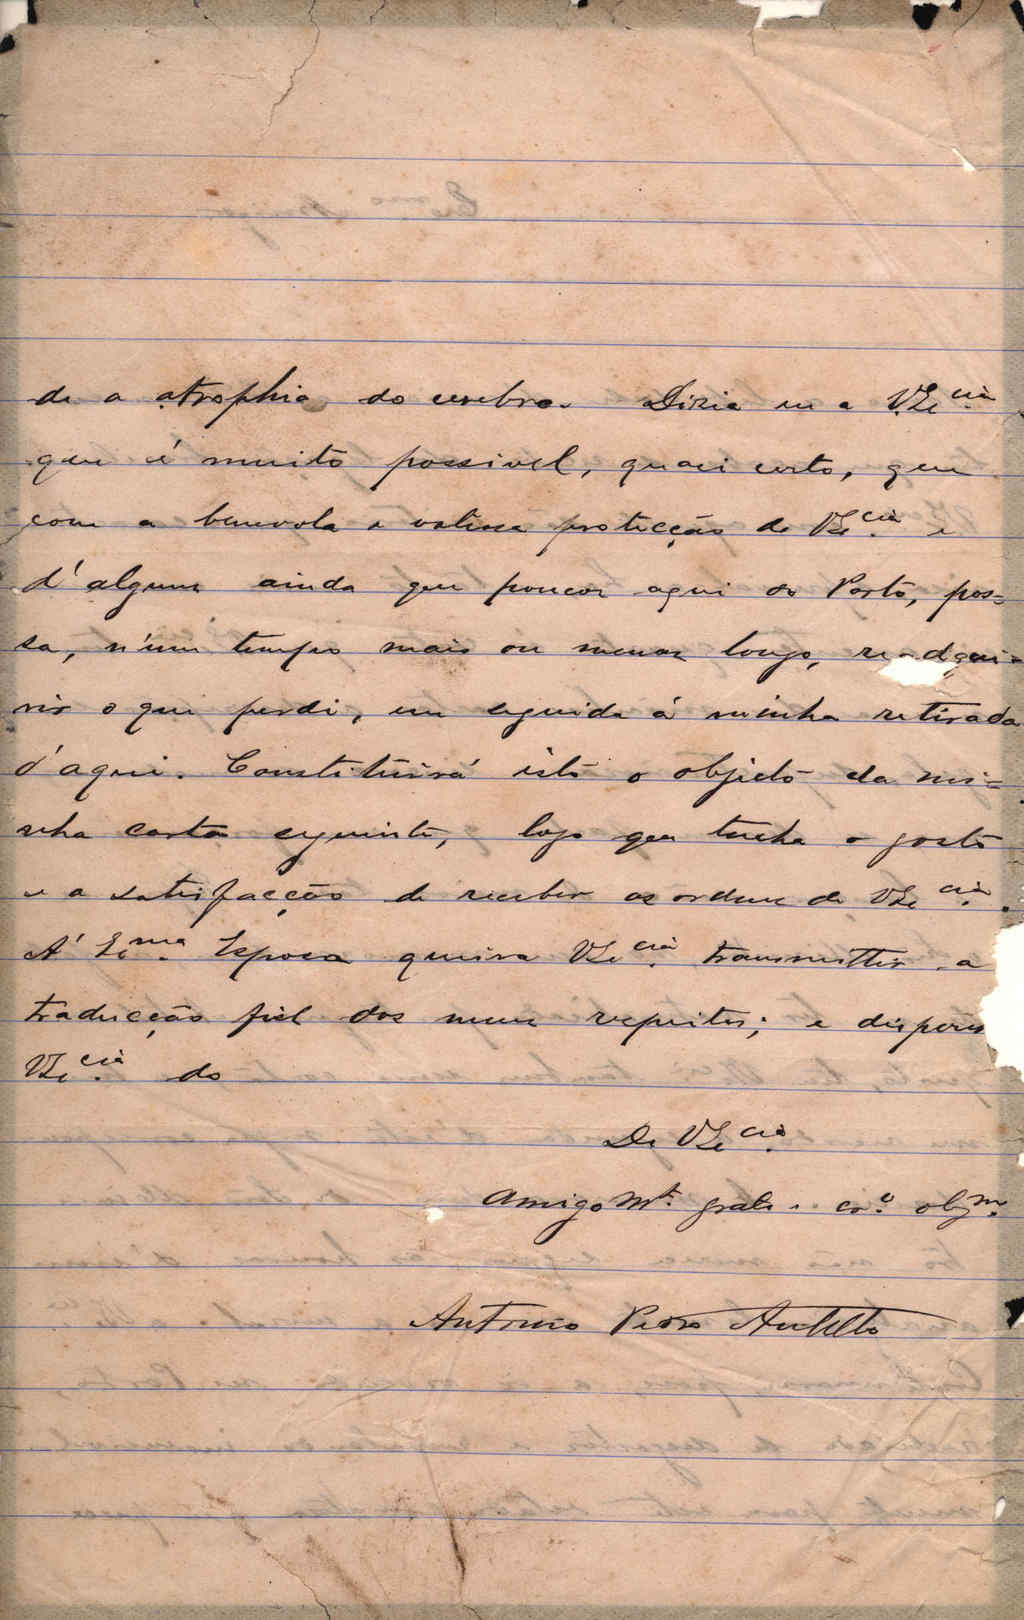 de a atrophia do cerebro. Diria eu a V.Ex.cia
que é muito possivel, quasi certo, que
com a benevola e valiosa protecção de V.Ex.cia e
d'alguns ainda que poucos aqui do Porto, pos-
sa, n'um tempo mais ou menos longo, readqui-
rir o que perdi, em seguida á minha retirada
d'aqui. Constituirá isto o objecto da mi-
nha carta seguinte, logo que tenha o gosto
e a satisfacção de receber as ordens de V.Ex.cia.
Á Ex.ma Esposa queira V.Ex.cia transmittir a
traducção fiel dos meus respeitos; e disponha
V.Ex.cia do
De V.Ex.cia
Amigo Mt. grato e cr.o obgm.
Antonio Pedro